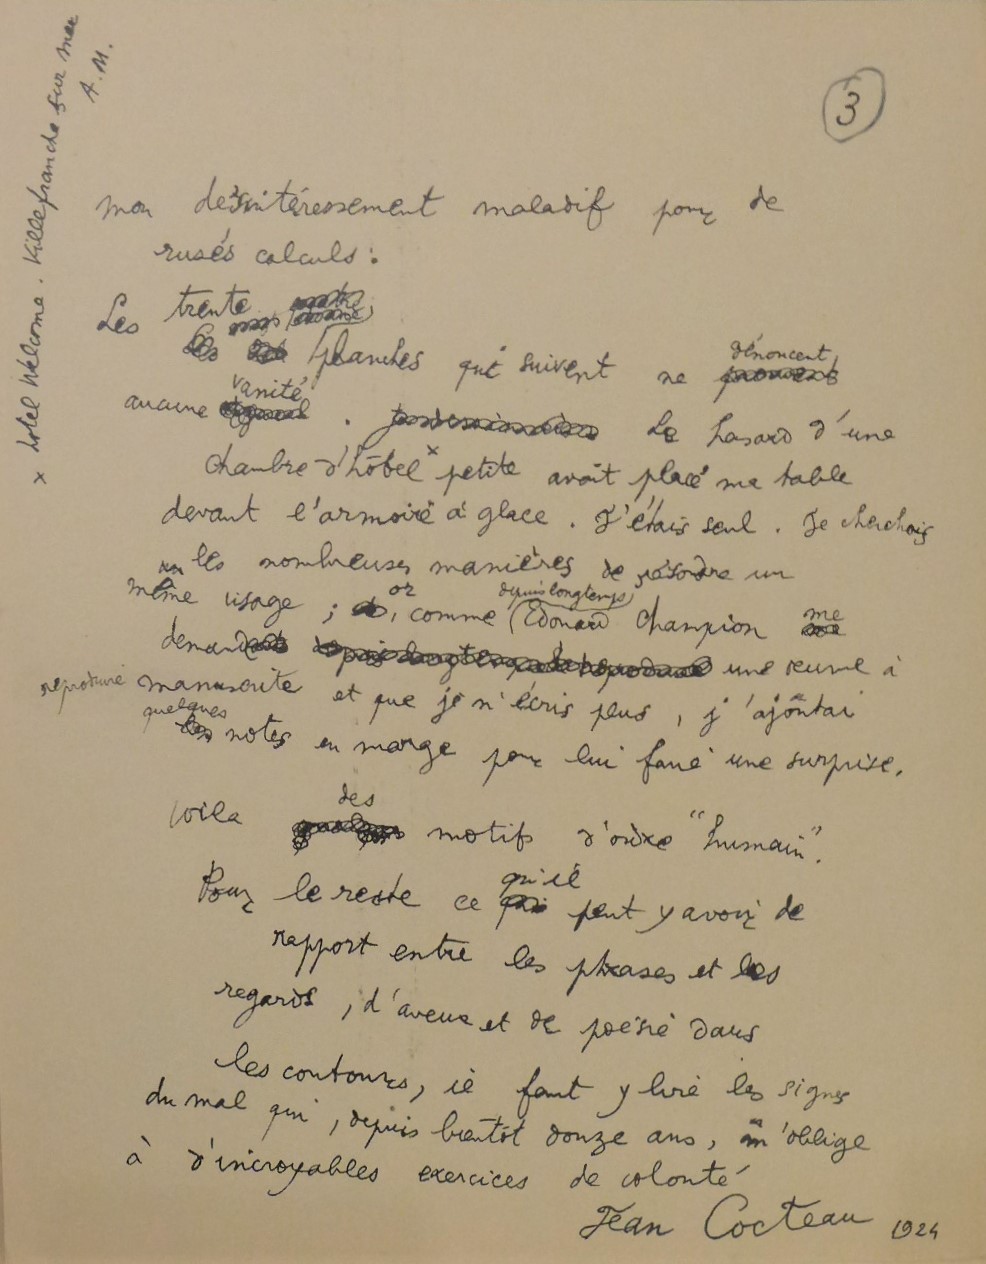 3
mon désintéressement maladif pour de
rusés calculs :
Les trente
planches qui suivent ne dénoncent
aucune vanité. Le hasard d'une
chambre d'hôtel x petite avait placé ma table
devant l'armoire à glace. J'étais seul. Je cherchais
les nombreuses manières de résoudre un
même visage ; or, comme (depuis longtemps) Edouard Champion me
demande une œuvre à
reproduire manuscrite et que je n'écris plus, j'ajoutai
quelques notes en marge pour lui faire une surprise.
Voila des motifs d'ordre "humain".
Pour le reste ce qu'il peut y avoir de
rapport entre les phrases et les
regards, d'aveux et de poésie dans
les contours, il faut y lire les signes
du mal qui, depuis bientôt douze ans, m'oblige
à d'incroyables exercices de volonté
Jean Cocteau 1924
x Hotel Welcome. Villefranche sur mer
A. M.